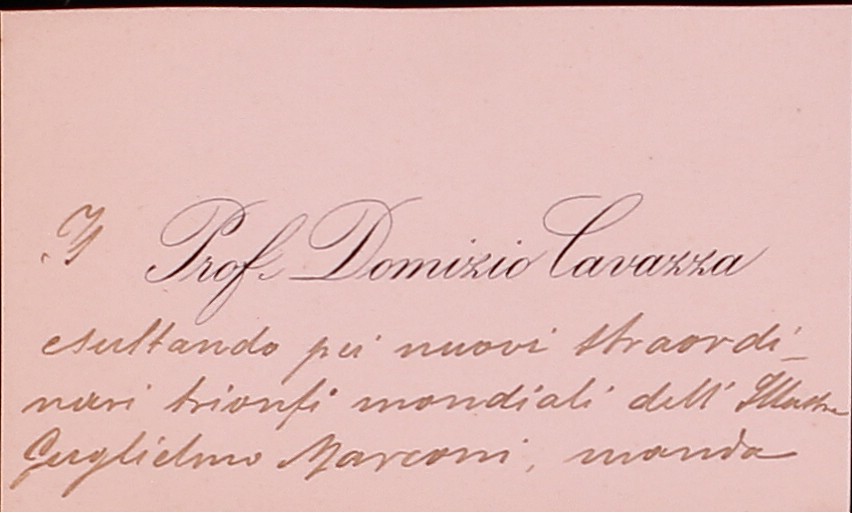 Il Prof. Domizio Cavazza
esultando pei nuovi straordi-
nari trionfi mondiali dell' Illustre
Guglielmo Marconi, manda